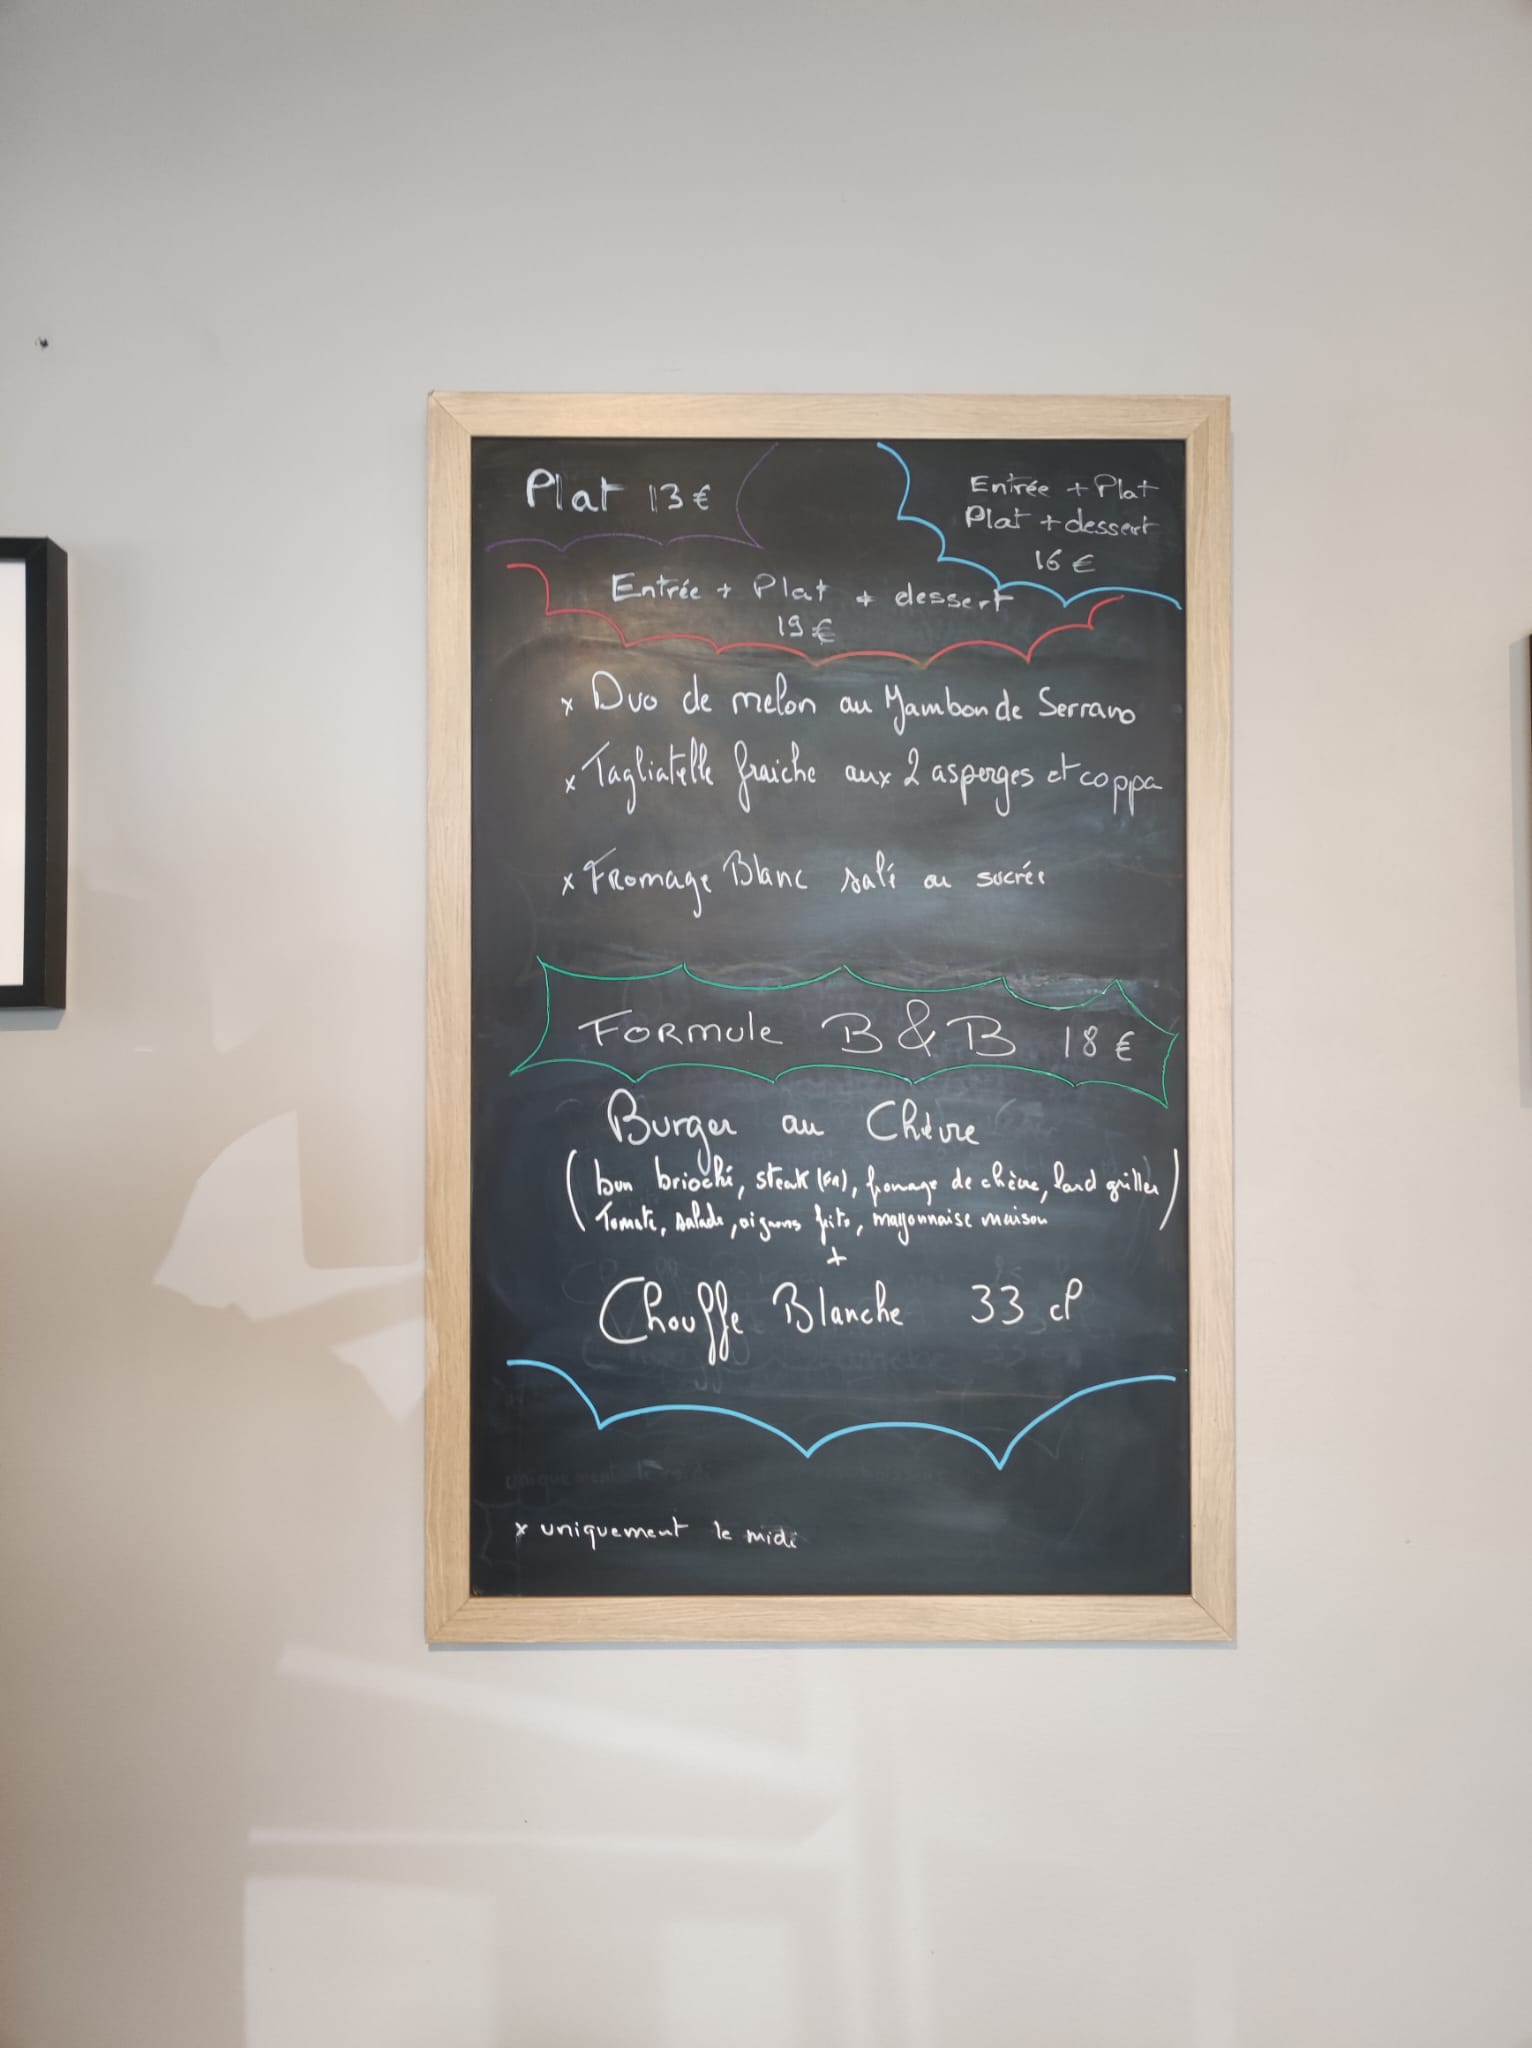 Plat 13 €
Entrée + Plat
Plat + dessert
16 €
Entrée + Plat + dessert
19 €
x Duo de melon au Jambon de Serrano
x Tagliatelle fraiche aux 2 asperges et coppa
x Fromage Blanc salé ou sucrée
Formule B & B 18 €
Burger au Chèvre
(bun brioché, steak (FR), fromage de chèvre, lard griller
Tomate, salade, oignons frits, mayonnaise maison)
+
Chouffe Blanche 33 cl
x uniquement le midi